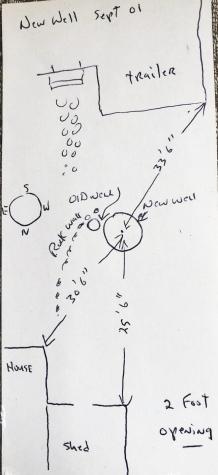 New Well Sept 01
trailer
33'6"
S
E W
N
OlD well
New well
Rock wall
30'6"
25'6"
House
2 Foot
opening
shed